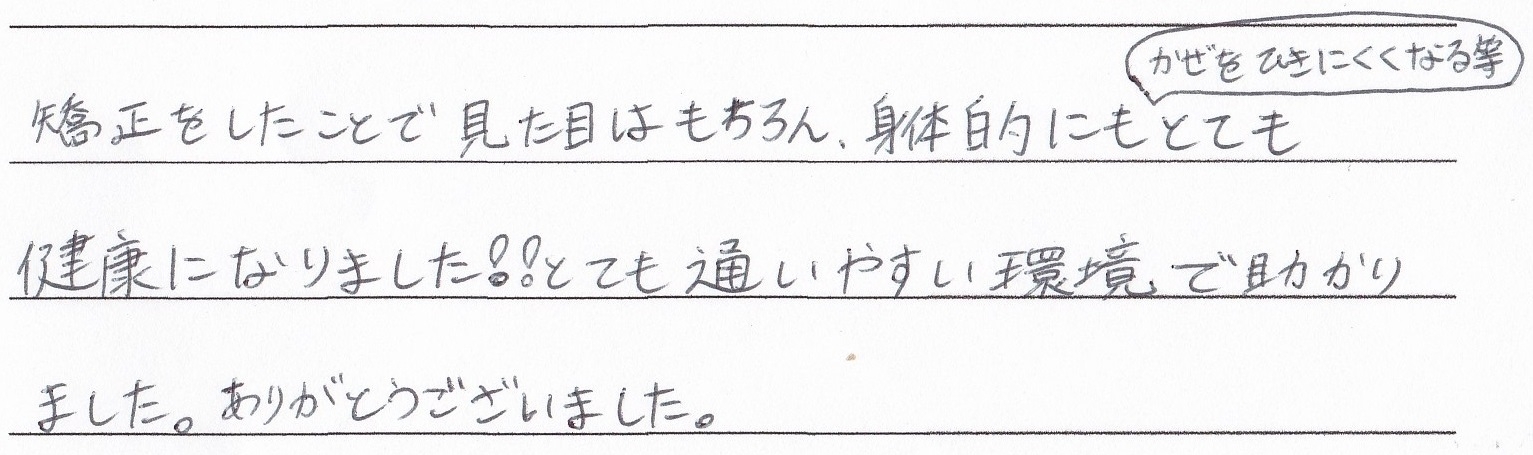 かぜをひきにくくなる等
矯正をしたことで見た目はもちろん、身体的にもとても
健康になりました!!とても通いやすい環境で助かり
ました。ありがとうございました。